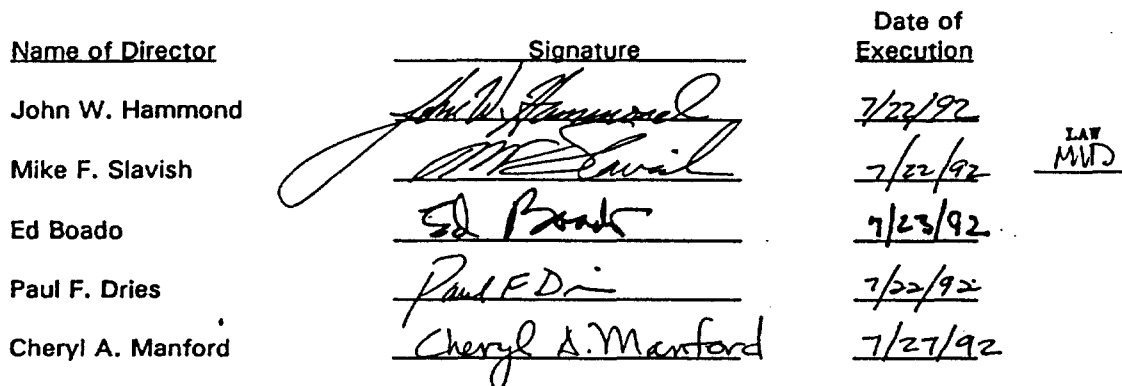 Date of
Name of Director Signature Execution
John W. Hammond John W. Hammond 7/22/92
LAW
Mike F. Slavish M F Slavish 7/22/92 MWD
Ed Boado Ed Boado 7/23/92
Paul F. Dries Paul F Dri 7/22/92
Cheryl A. Manford Cheryl A. Manford 7/27/92